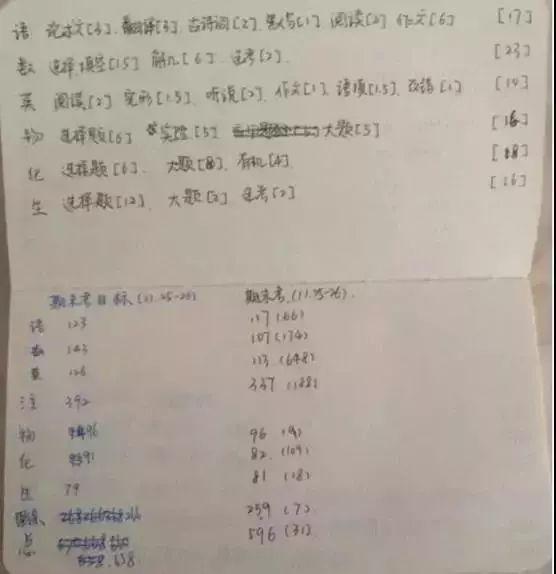 语 论述文[3]. 翻译[3]. 古诗词[2]. [1]. 阅读[2] 作文[6] [17]
数 选择填空[15] 解几[6]. 选考[2]. [23]
英 阅读[2] 完形[1.5]. 听说[2]. 作文[1]. 语填[1.5]. 改错[1] [10]
物 选择题[6] 实验[5] 大题[5] [16]
化 选择题[6]. 大题[8]. 有机[4]. [18]
生 选择题[12]. 大题[2] 选考[2] [16]
期末考目标.(11.25-26) 期末考.(11.25-26).
语 123 117 (66)
数 143 107 (174)
英 126 113 (648)
392 337 (188)
物 96 96 (9)
化 91 82 (109)
生 79 81 (18)
266 259 (7)
总 658 596 (31)